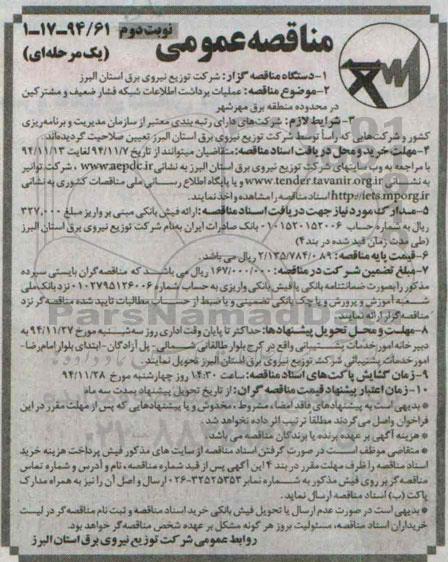 مناقصه عمومی
نوبت دوم
۱-۱۷-۹۴/۶۱
(یک مرحله‌ای)
۱-دستگاه مناقصه گزار: شرکت توزیع نیروی برق استان البرز
۲-موضوع مناقصه: عملیات برداشت اطلاعات شبکه فشار ضعیف و مشترکین
در محدوده منطقه برق مهرشهر
۳-شرایط لازم: شرکت‌های دارای رتبه بندی معتبر از سازمان مدیریت و برنامه‌ریزی
کشور و شرکت‌هایی که رأسا توسط شرکت توزیع نیروی برق استان البرز تعیین صلاحیت گردیده‌اند.
۴-مهلت خرید و محل دریافت اسناد مناقصه: متقاضیان میتوانند از تاریخ ۹۴/۱۱/۷ لغایت ۹۴/۱۱/۱۳
با مراجعه به وب سایتهای شرکت توزیع نیروی برق استان البرز به نشانی www.aepdc.ir ، شرکت توانیر
به نشانی www.tender.tavanir.org.ir و یا پایگاه اطلاع رسانی ملی مناقصات کشوری به نشانی
http://iets.mporg.ir اسناد مناقصه را مشاهده و اخذ نمایند.
۵-مدارک مورد نیاز جهت دریافت اسناد مناقصه: ارائه فیش بانکی مبنی بر واریز مبلغ ۳۲۷,۰۰۰
ریال به شماره حساب ۰۱۰۱۵۲۰۱۵۲۰۰۶ بانک صادرات ایران به‌نام شرکت توزیع نیروی برق استان البرز
(طی مدت زمان قید شده در بند۴)
۶-قیمت پایه مناقصه: ۲/۱۳۵/۷۸۴/۰۸۹ ریال می باشد.
۷-مبلغ تضمین شرکت در مناقصه: ۱۶۷/۰۰۰/۰۰۰ ریال می باشد که مناقصه‌گران بایستی سپرده
مذکور را بصورت ضمانتنامه بانکی یا فیش بانکی واریزی به حساب شماره ۰۱۰۲۷۹۵۱۲۶۰۰۶ نزد بانک ملی
شعبه آموزش و پرورش و یا چک بانکی تضمینی و یا ضبط از حساب مطالبات تایید شده مناقصه‌گر نزد
مناقصه گزار ارائه نمایند.
۸-مهلت و محل تحویل پیشنهادها: حداکثر تا پایان وقت اداری روز سه‌شنبه مورخ ۹۴/۱۱/۲۷ به
دبیر خانه امور خدمات پشتیبانی واقع در کرج بلوار طالقانی شمالی- پل آزادگان- ابتدای بلوار امام رضا-
امور خدمات پشتیبانی شرکت توزیع نیروی برق استان البرز تحویل نمایند.
۹-زمان گشایش پاکت‌های اسناد مناقصه: ساعت ۱۴:۳۰ روز چهارشنبه مورخ ۹۴/۱۱/۲۸
۱۰-زمان اعتبار پیشنهاد قیمت مناقصه گران: از تاریخ تحویل پیشنهاد بمدت سه ماه
* بدیهی است به پیشنهادهای فاقد امضاء، مشروط، مخدوش و یا پیشنهادهایی که پس از مهلت مقرر در این
فراخوان واصل می‌گردند مطلقا ترتیب اثر داده نخواهد شد.
* هزینه آگهی بر عهده برنده یا برندگان مناقصه می باشد.
* متقاضی موظف است در صورت گرفتن اسناد مناقصه از سایت های مذکور فیش پرداخت هزینه خرید
اسناد مناقصه را ظرف مهلت مقرر در بند ۴ این آگهی پس از قید شماره مناقصه، نام و آدرس و شماره تماس
مناقصه گر بر روی فیش مذکور به شماره نمابر ۳۲۵۲۵۳۵۳-۰۲۶ ارسال و اصل آن را نیز به همراه مدارک
پاکت (ب) اسناد مناقصه ارسال نماید.
* بدیهی است در صورت عدم ارسال یا تحویل فیش بانکی خرید اسناد مناقصه و ثبت نام مناقصه گر در لیست
خریداران اسناد مناقصه، مسئولیت بروز هر گونه مشکل بر عهده شخص مناقصه‌گر خواهد بود.
روابط عمومی شرکت توزیع نیروی برق استان البرز
ParsNamadData